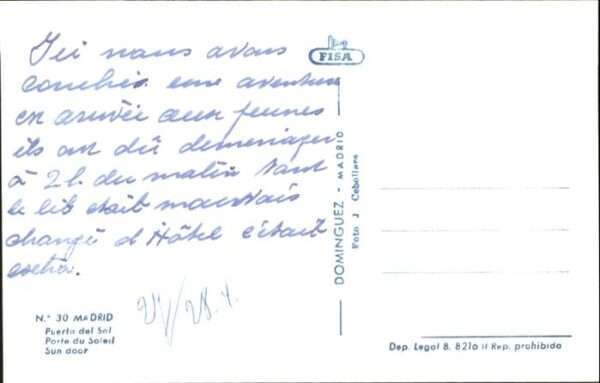 Ici nous avons
couchés une aventure
est arrivée aux jeunes
ils on dû demenager
à 2 h. du matin tant
le lit était mauvais
changé d Hôtel c'était
extra.
27/28. 
FISA
DOMINGUEZ - MADRID
Foto J Ceballare
N.º 30 MADRID
Puerta del Sol
Porte du Soleil
Sun door
Dep. Legal B. 8210 II Rep. prohibida